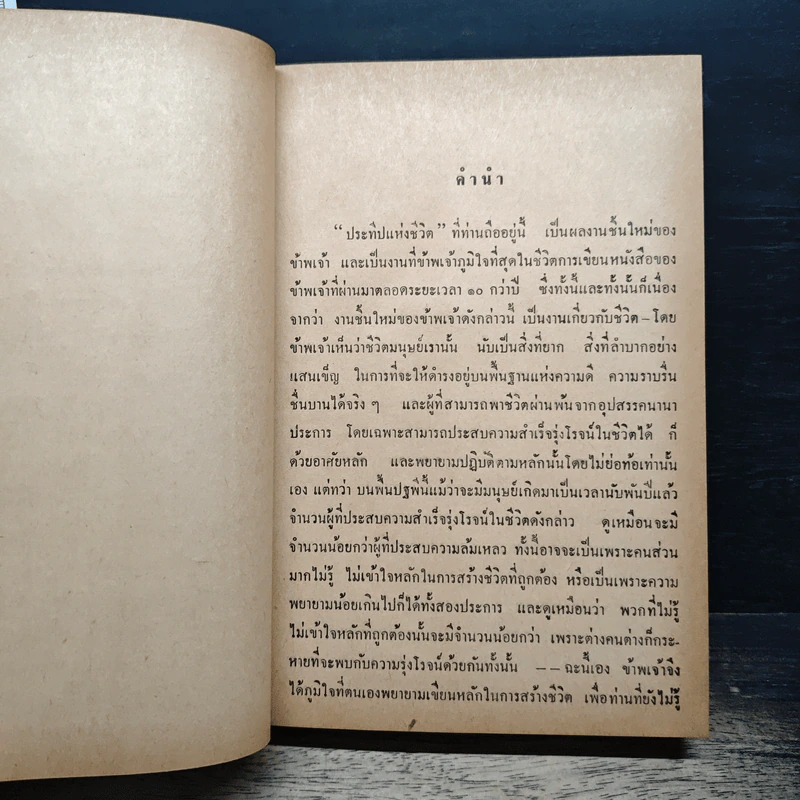 คำนำ
“ประทีปแห่งชีวิต” ที่ท่านถืออยู่นี้ เป็นผลงานชิ้นใหม่ของ
ข้าพเจ้า และเป็นงานที่ข้าพเจ้าภูมิใจที่สุดในชีวิตการเขียนหนังสือของ
ข้าพเจ้าที่ผ่านมาตลอดระยะเวลา ๑๐ กว่าปี ซึ่งทั้งนี้และทั้งนั้นก็เนื่อง
จากว่า งานชิ้นใหม่ของข้าพเจ้าดังกล่าวนี้ เป็นงานเกี่ยวกับชีวิต – โดย
ข้าพเจ้าเห็นว่าชีวิตมนุษย์เรานั้น นับเป็นสิ่งที่ยาก สิ่งที่ลำบากอย่าง
แสนเข็ญ ในการที่จะให้ดำรงอยู่บนพื้นฐานแห่งความดี ความราบรื่น
ชื่นบานได้จริง ๆ และผู้ที่สามารถพาชีวิตผ่านพ้นจากอุปสรรคนานา
ประการ โดยเฉพาะสามารถประสบความสำเร็จรุ่งโรจน์ในชีวิตได้ ก็
ด้วยอาศัยหลัก และพยายามปฏิบัติตามหลักนั้นโดยไม่ย่อท้อเท่านั้น
เอง แต่ทว่า บนพื้นปฐพีนี้แม้ว่าจะมีมนุษย์เกิดมาเป็นเวลานับพันปีแล้ว
จำนวนผู้ที่ประสบความสำเร็จรุ่งโรจน์ในชีวิตดังกล่าว ดูเหมือนจะมี
จำนวนน้อยกว่าผู้ที่ประสบความล้มเหลว ทั้งนี้อาจจะเป็นเพราะคนส่วน
มากไม่รู้ ไม่เข้าใจหลักในการสร้างชีวิตที่ถูกต้อง หรือเป็นเพราะความ
พยายามน้อยเกินไปก็ได้ทั้งสองประการ และดูเหมือนว่า พวกที่ไม่รู้
ไม่เข้าใจหลักที่ถูกต้องนั้นจะมีจำนวนน้อยกว่า เพราะต่างคนต่างก็กระ-
หายที่จะพบกับความรุ่งโรจน์ด้วยกันทั้งนั้น – – ฉะนี้เอง ข้าพเจ้าจึง
ได้ภูมิใจที่ตนเองพยายามเขียนหลักในการสร้างชีวิต เพื่อท่านที่ยังไม่รู้